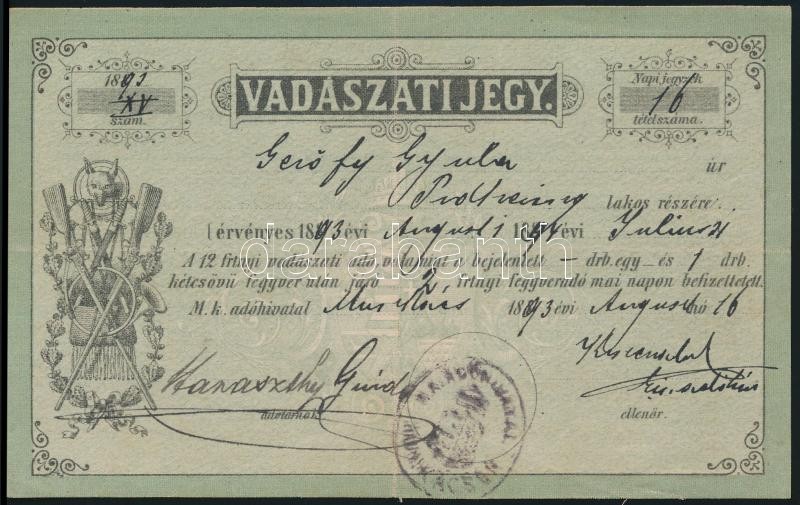 1893
XV
szám.
VADÁSZATI JEGY.
Napi jegyzék
16
tételszáma.
Gerőfy Gyula úr
lakos részére.
Érvényes 1893 évi August 1 1894 évi Julius 31
A 12 frtnyi vadászati adó, valamint a bejelentett – drb. egy – és 1 drb.
kétcsövű fegyver után járó 2 frtnyi fegyveradó mai napon befizettetett.
M. k. adóhivatal Munkács 1893 évi August hó 16
adótárnok.
ellenőr.
darabanth